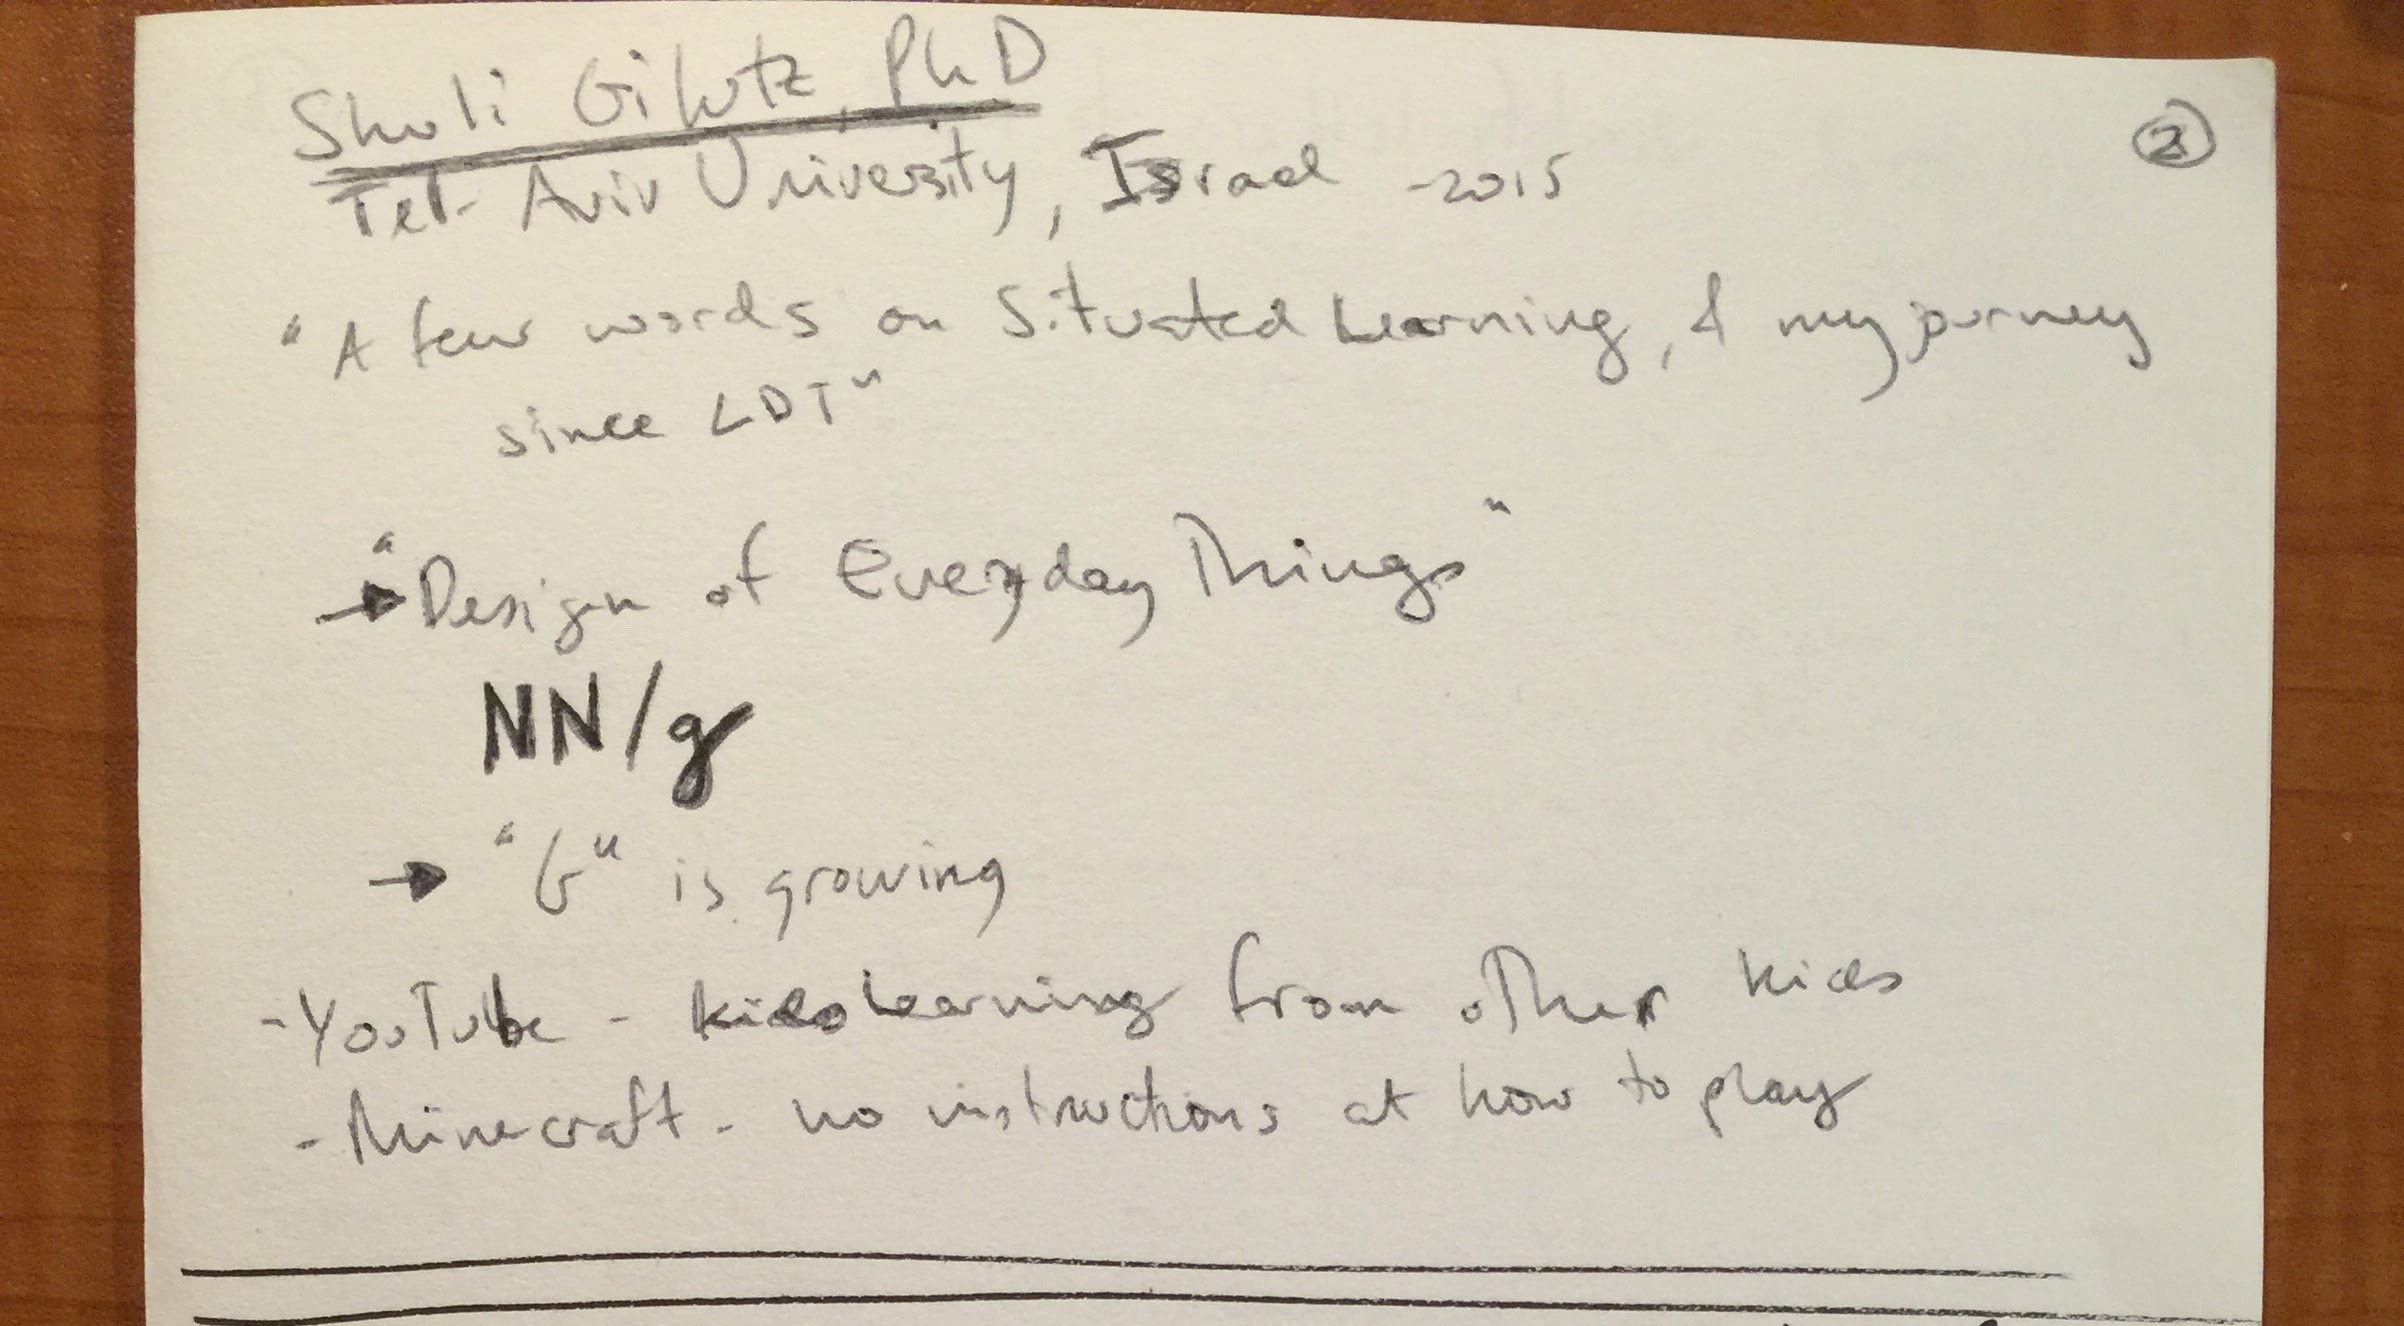 Shuli Gilutz, PhD
②
Tel-Aviv University, Israel -2015
"A few words on Situated Learning, & my journey
since LDT"
→ "Design of Everyday Things"
NN/g
→ "G" is growing
- YouTube - kids learning from other kids
- Minecraft - no instructions at how to play